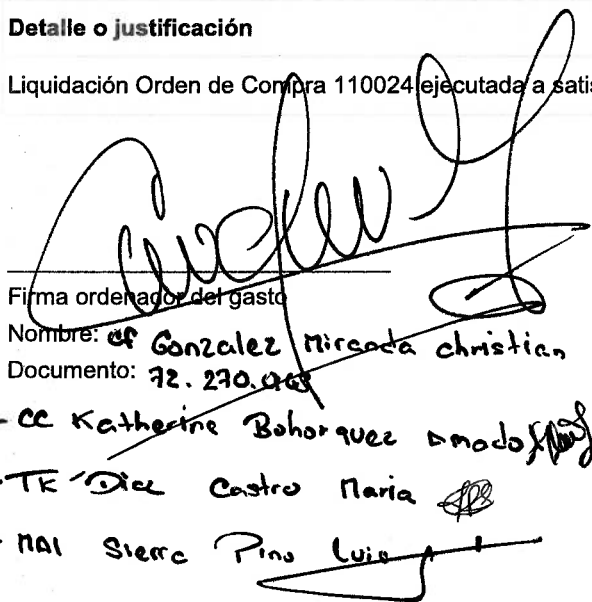 Detalle o justificación
Liquidación Orden de Compra 110024 ejecutada a satis
Firma ordenador del gasto
Nombre: CF Gonzalez Miranda christian
Documento: 72.270.
- CC Katherine Bohorquez Amado
- TK Diaz Castro Maria
- MA1 Sierra Pino Luis